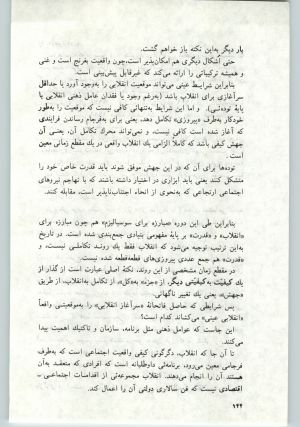 بار دیگر به‌این نکته باز خواهم گشت.
حتی اشکال دیگری هم امکان‌پذیر است، چون واقعیت بغرنج است و غنی
و همیشه ترکیباتی را ارائه می‌کند که غیرقابل پیش‌بینی است.
بنابراین شرایط عینی می‌تواند موقعیت انقلابی را به‌وجود آورد یا حداقل
سرآغازی برای انقلاب باشد (به‌رغم وجود یا فقدان عامل ذهنی انقلابی یا
پایهٔ توده‌ئی). و اما این شرایط به‌تنهائی کافی نیست که موقعیت را به‌طور
خودکار به‌طرف «پیروزی» تکامل دهد، یعنی برای به‌فرجام رساندن فرایندی
که آغاز شده است کافی نیست، و نمی‌تواند محرك تکامل آن، یعنی آن
جهش کیفی باشد که کاملا الزامی یك انقلاب واقعی در یك مقطع زمانی معین
است.
توده‌ها برای آن که در این جهش موفق شوند باید قدرت خاص خود را
متشکل کنند یعنی باید ابزاری در اختیار داشته باشند که با تهاجم نیروهای
اجتماعی ارتجاعی که به‌نحوی از انحاء اجتناب‌ناپذیر است، مقابله کنند.
بنابراین طی این دوره «مبارزه برای سوسیالیزم» هم چون مبارزه برای
«انقلاب» و «قدرت» بر پایهٔ مفهومی بنیادی جمع‌بندی شده است. در تاریخ
به‌این ترتیب توجیه می‌شود که انقلاب فقط یك روند تکاملی نیست، و
«قدرت» هم جمع عددی پیروزی‌های قطعه‌قطعه شده نیست.
در مقطع زمان مشخصی از این روند، نکتهٔ اصلی عبارت است از گذار از
یك کیفیت به‌کیفیتی دیگر، از «جزء» به«کل»، از تکامل به‌انقلاب، از طریق
«جهش»، یعنی یك تغییر ناگهانی.
پس شرایطی که حاصل فاتحانهٔ «سرآغاز انقلابی» را به‌موقعیتی واقعاً
«انقلابی عینی» می‌کشاند کدام است؟
این جاست که عوامل ذهنی مثل برنامه، سازمان و تاکتیك اهمیت پیدا
می‌کنند.
تا آن جا که انقلاب، دگرگونی کیفی واقعیت اجتماعی است که به‌طرف
فرجامی معین می‌رود، برنامه‌ئی داوطلبانه است که افرادی که متعقد به‌آن
هستند آن را انجام می‌دهند. انقلاب مجموعه‌ئی از اقدامات اجتماعی ـ
اقتصادی نیست که فن سالاری دولتی آن را اعمال کند.
۱۴۴